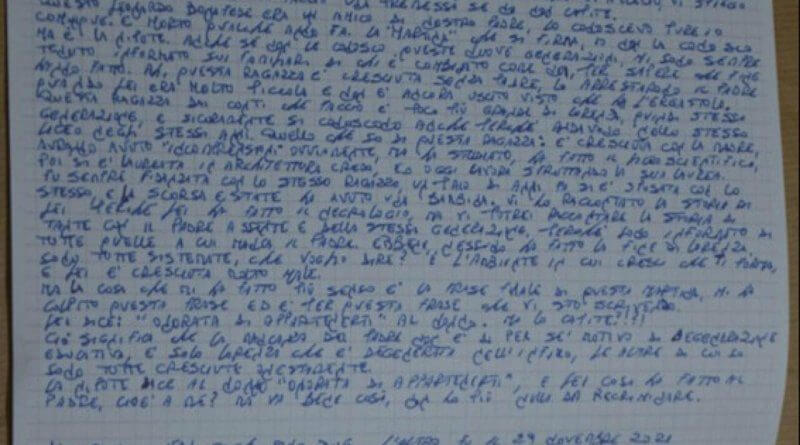 QUESTO LEONARDO BONAFEDE ERA UN AMICO DI NOSTRO PADRE, LO CONOSCEVO PURE IO
COMUNQUE È MORTO QUALCHE ANNO FA. LA "MARTINA" CHE SI FIRMA, IO NON LA CONOSCO
MA È LA NIPOTE. ANCHE SE NON LE CONOSCO, QUESTE NUOVE GENERAZIONI, MI SONO SEMPRE
TENUTO INFORMATO SUI FAMILIARI DI CHI È COMBINATO COME NOI, PER SAPERE CHE FINE
HANNO FATTO. QUESTA RAGAZZA È CRESCIUTA SENZA PADRE, LO ARRESTARONO IL PADRE
QUANDO LEI ERA MOLTO PICCOLA E NON È ANCORA USCITO VISTO CHE HA L'ERGASTOLO.
QUESTA RAGAZZA DAI CONTI CHE FACCIO È POCO PIÙ GRANDE DI LORENZA, QUINDI STESSA
GENERAZIONE, E SICURAMENTE SI CONOSCONO ANCHE PERCHÉ ANDAVANO NELLO STESSO
LICEO NEGLI STESSI ANNI. QUELLO CHE SO DI QUESTA RAGAZZA: È CRESCIUTA CON LA MADRE,
AVENDO AVUTO OVVIAMENTE, MA HA STUDIATO, HA FATTO IL LICEO SCIENTIFICO,
POI SI È LAUREATA IN ARCHITETTURA CREDO, ED OGGI LAVORA SFRUTTANDO LA SUA LAUREA.
FU SEMPRE FIDANZATA CON LO STESSO RAGAZZO, UN PAIO DI ANNI FA SI È SPOSATA CON LO
STESSO, E LA SCORSA ESTATE HA AVUTO UNA BAMBINA. VI HO RACCONTATO LA STORIA DI
LEI PERCHÉ LEI HA FATTO IL NECROLOGIO, MA VI POTREI RACCONTARE LA STORIA DI
TANTE CON IL PADRE ASSENTE E DELLA STESSA GENERAZIONE, PERCHÉ SONO INFORMATO DI
TUTTE QUELLE A CUI MANCA IL PADRE. EBBENE, NESSUNA HA FATTO LA FINE DI LORENZA,
SONO TUTTE SISTEMATE, CHE VOGLIO DIRE? È L'AMBIENTE IN CUI CRESCI CHE TI FORMA,
E LEI È CRESCIUTA MOLTO MALE.
MA LA COSA CHE MI HA FATTO PIÙ SENSO È LA FRASE FINALE DI QUESTA MARTINA, MI HA
COLPITO QUESTA FRASE ED È PER QUESTA FRASE CHE VI STO SCRIVENDO.
LEI DICE: "ONORATA DI APPARTENERTI" AL NONNO. MA LO CAPITE!!!!
CIÒ SIGNIFICA CHE LA MANCANZA DEL PADRE NON È DI PER SÉ MOTIVO DI DEGENERAZIONE
EDUCATIVA, È SOLO LORENZA CHE È DEGENERATA NELL'INFIMO, LE ALTRE DI CUI SO
SONO TUTTE CRESCIUTE ONESTAMENTE.
LA NIPOTE DICE AL NONNO "ONORATA DI APPARTENERTI", E LEI COSA HA FATTO AL
PADRE, CIOÈ A ME? MA VA BENE COSÌ, NON HO PIÙ NULLA DA RECRIMINARE.
29 NOVEMBRE 2021